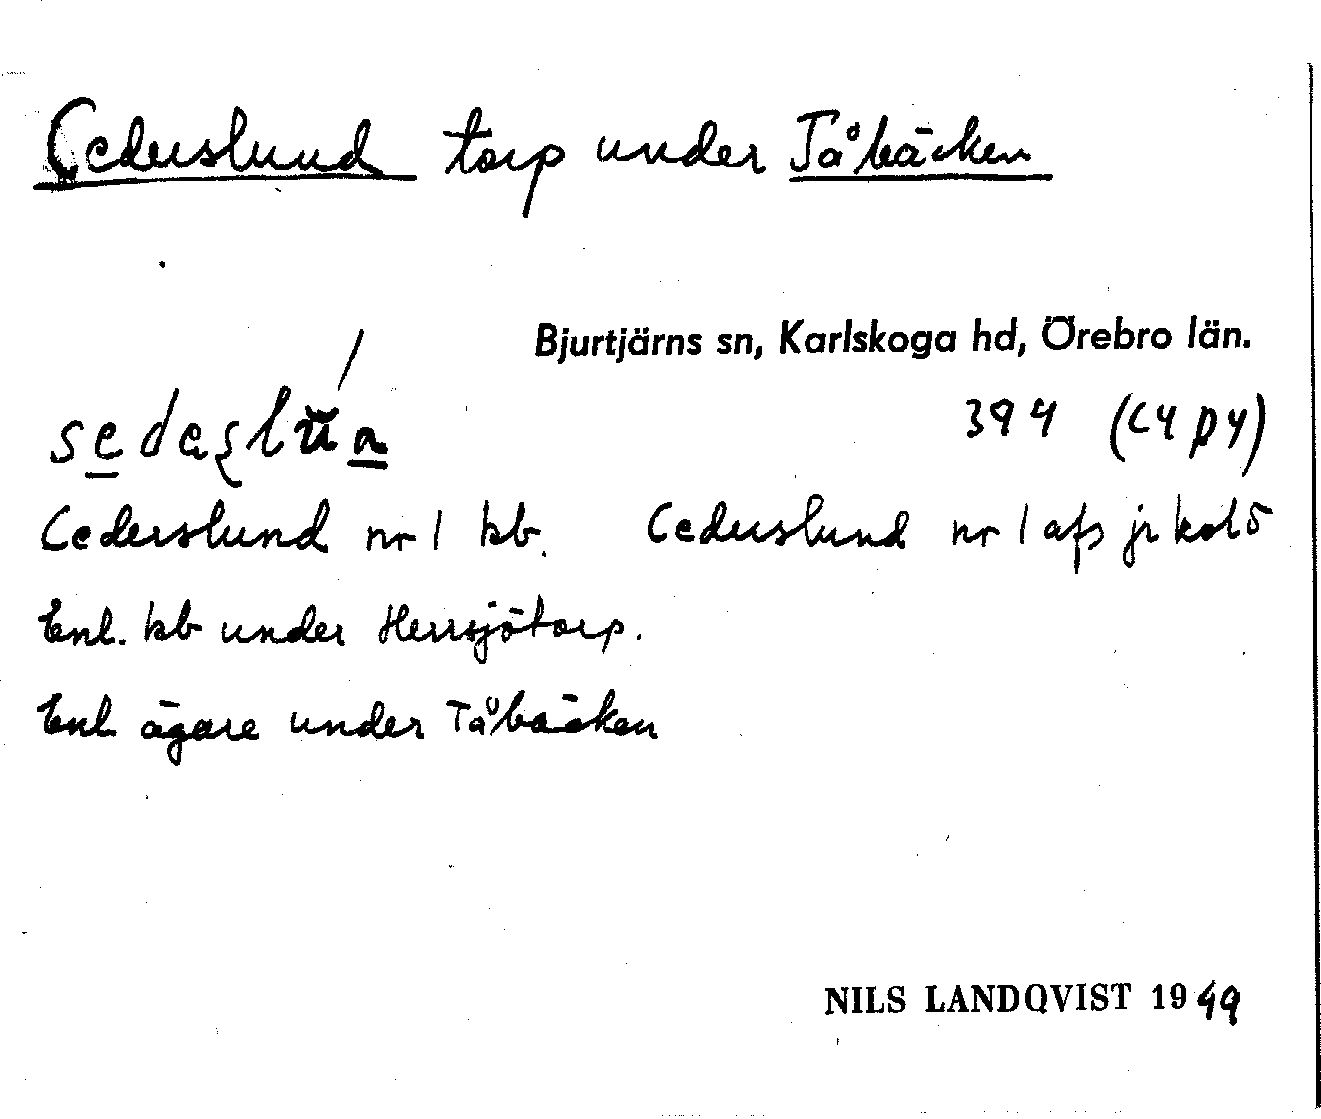 Cederslund torp under Tåbäcken
Bjurtjärns sn, Karlskoga hd, Örebro län.
394 (C4 p4)
Cederslund nr 1 kb. Cederslund nr 1 afs jr
Enl. kb under Herrsjötorp.
Enl ägare under Tåbäcken
NILS LANDQVIST 1949